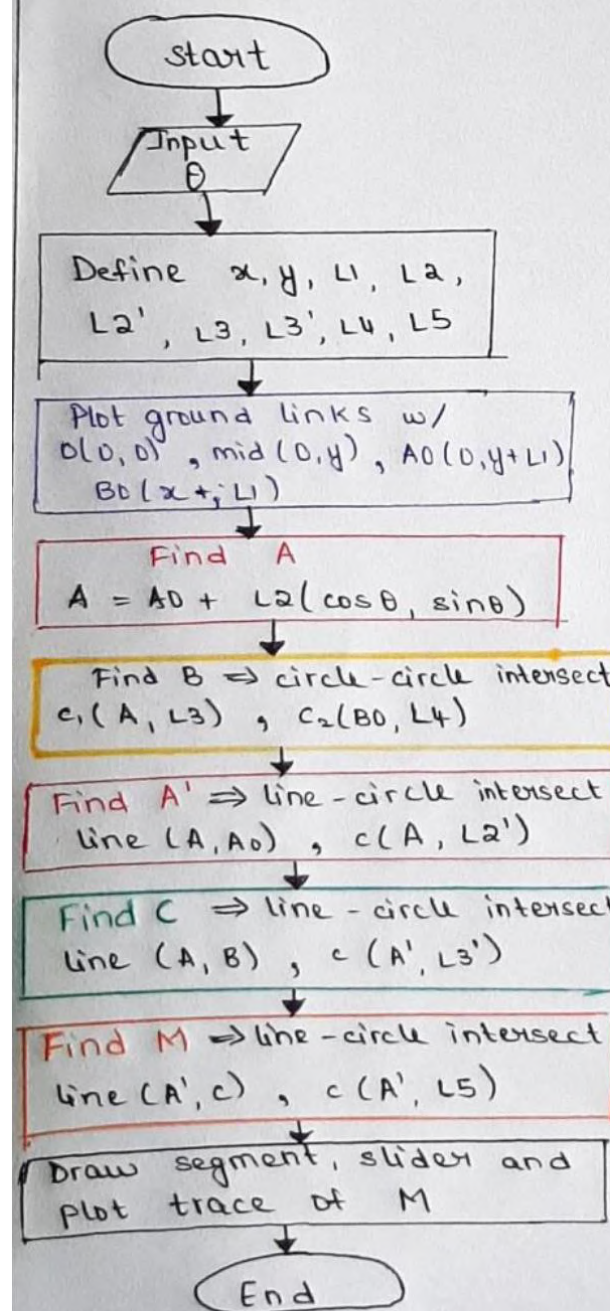 Start
Input
θ
Define x, y, L1, L2,
L2', L3, L3', L4, L5
Plot ground links w/
O(0,0), mid(0,y), A0(0,y+L1)
B0(x+, L1)
Find A
A = A0 + L2(cosθ, sinθ)
Find B ⇒ circle-circle intersect
C₁(A, L3) , C₂(B0, L4)
Find A' ⇒ line-circle intersect
line (A, A0) , c(A, L2')
Find C ⇒ line-circle intersect
line (A, B) , c (A', L3')
Find M ⇒ line-circle intersect
line (A', C) , c (A', L5)
Draw segment, slider and
plot trace of M
End